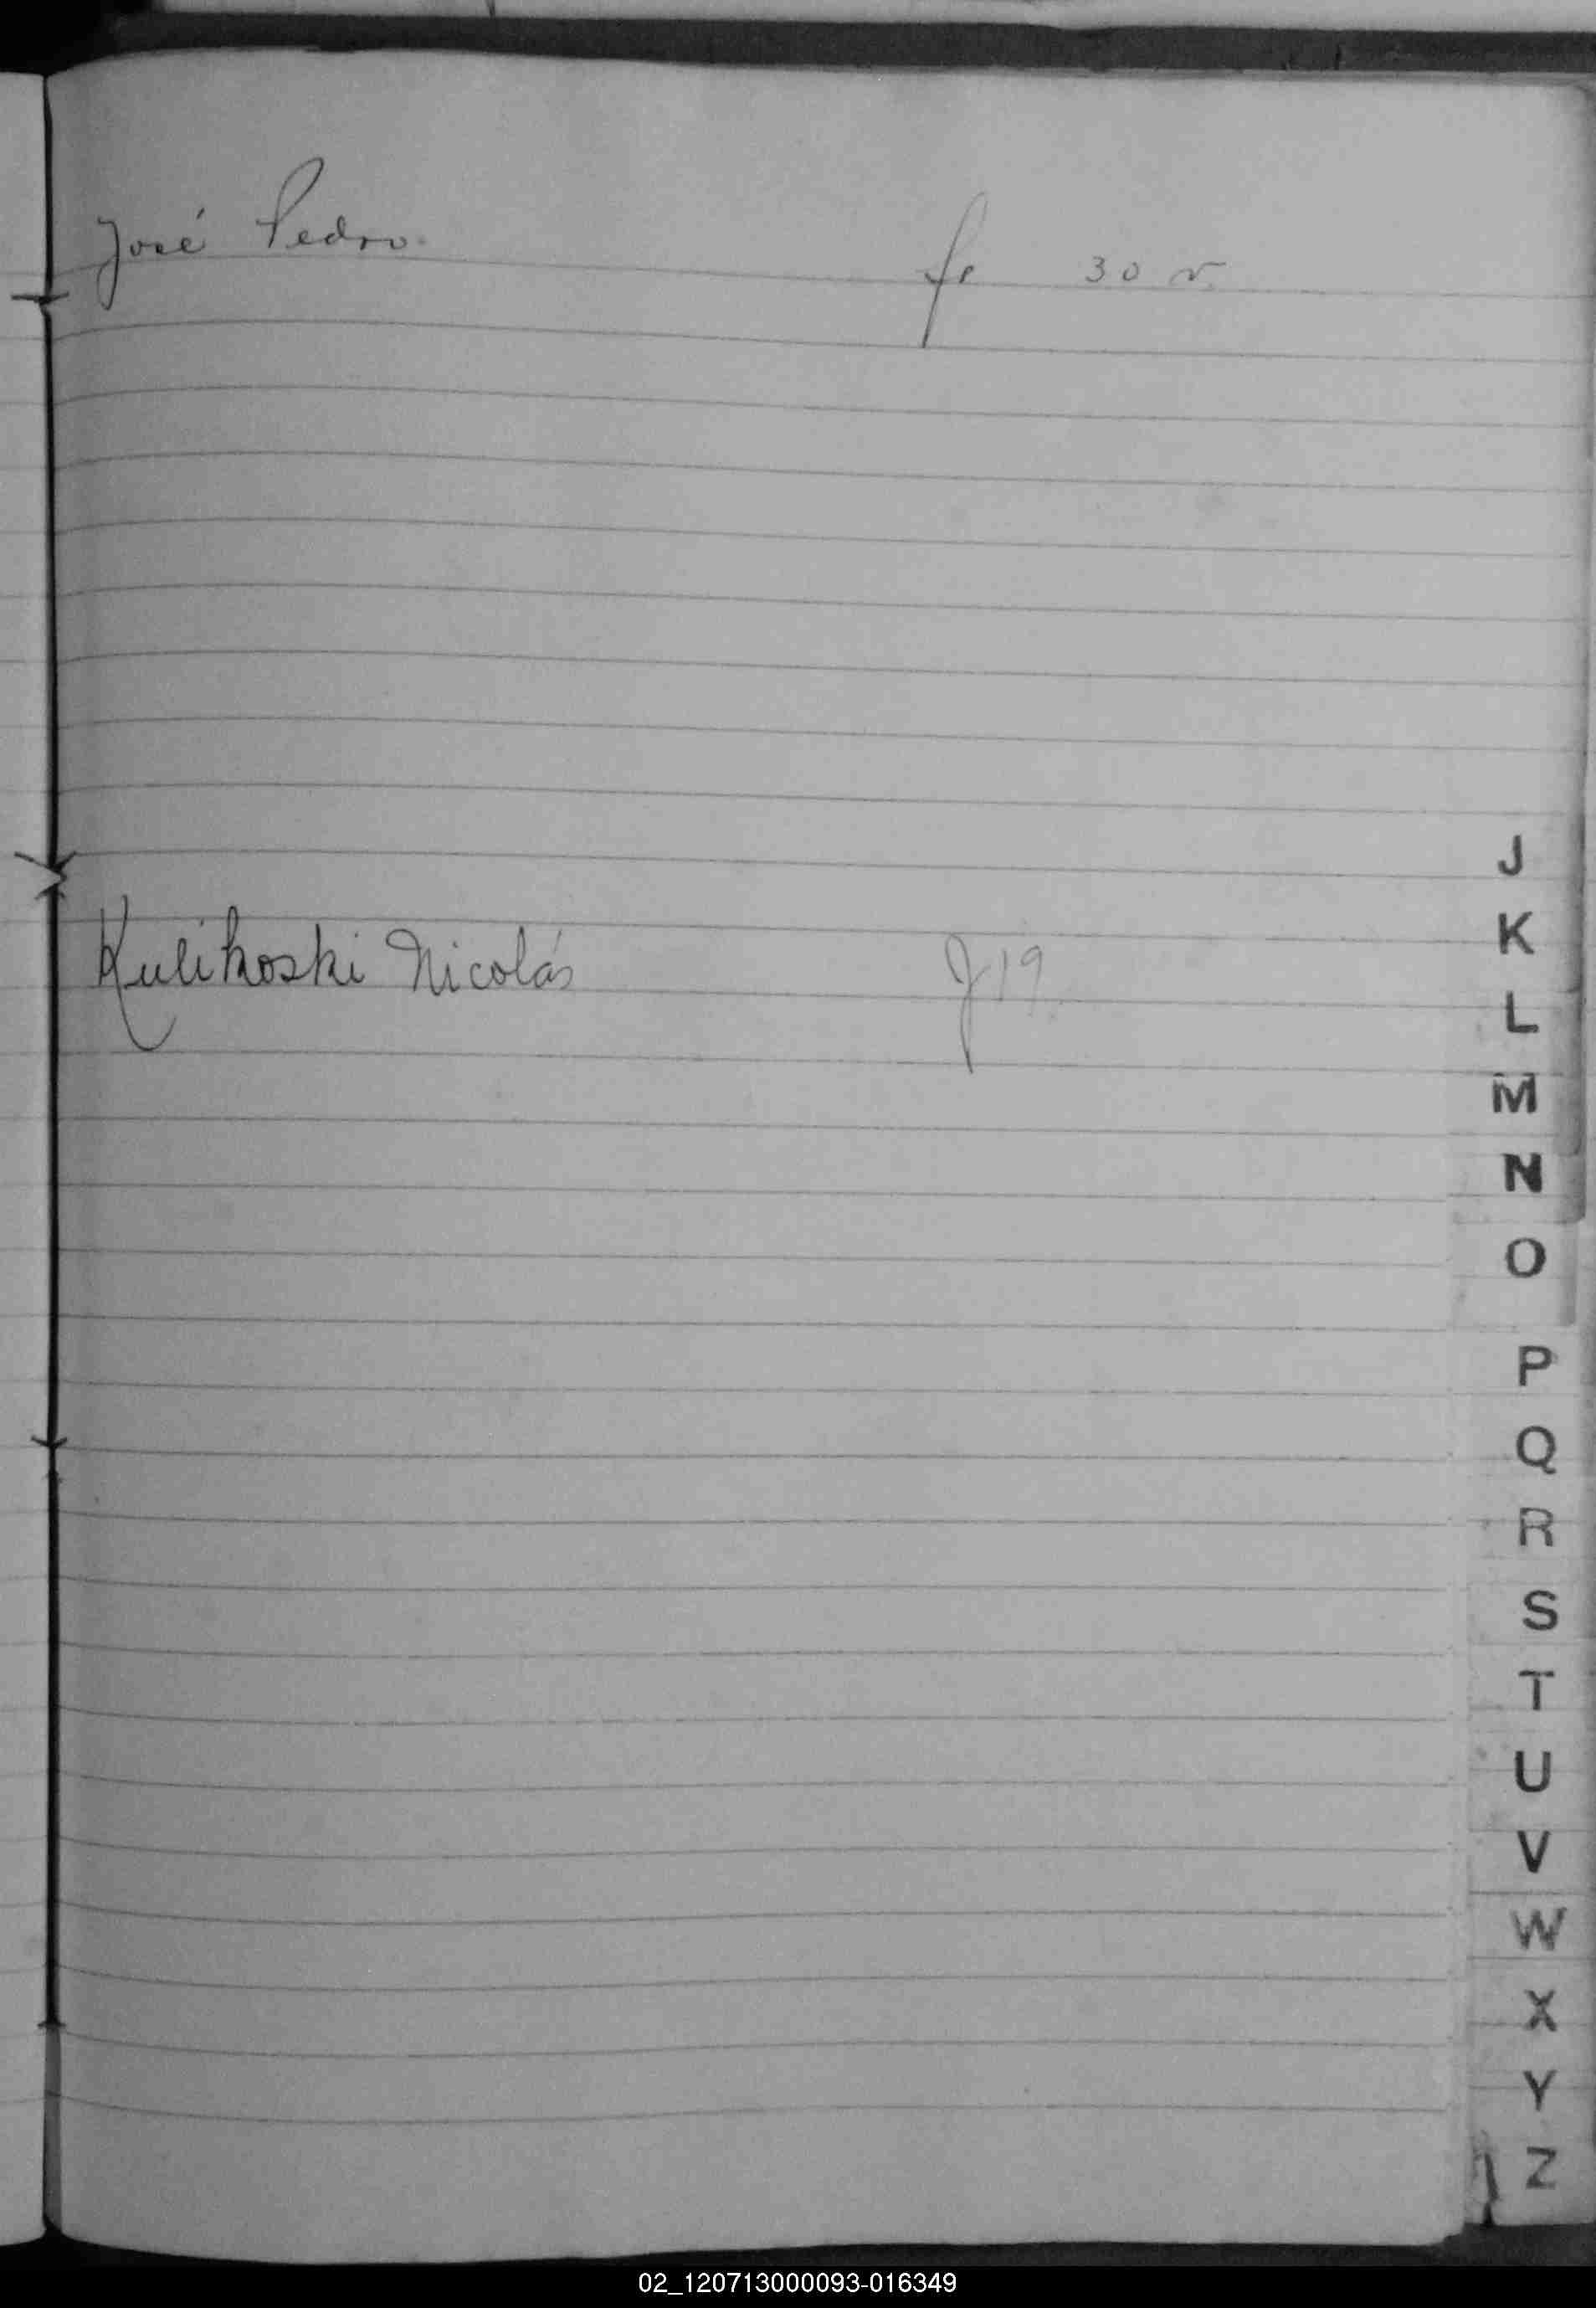 José Pedro. fs 30 v.
Kulikoski Nicolás f 19
J
K
L
M
N
O
P
Q
R
S
T
U
V
W
X
Y
Z
02_120713000093-016349